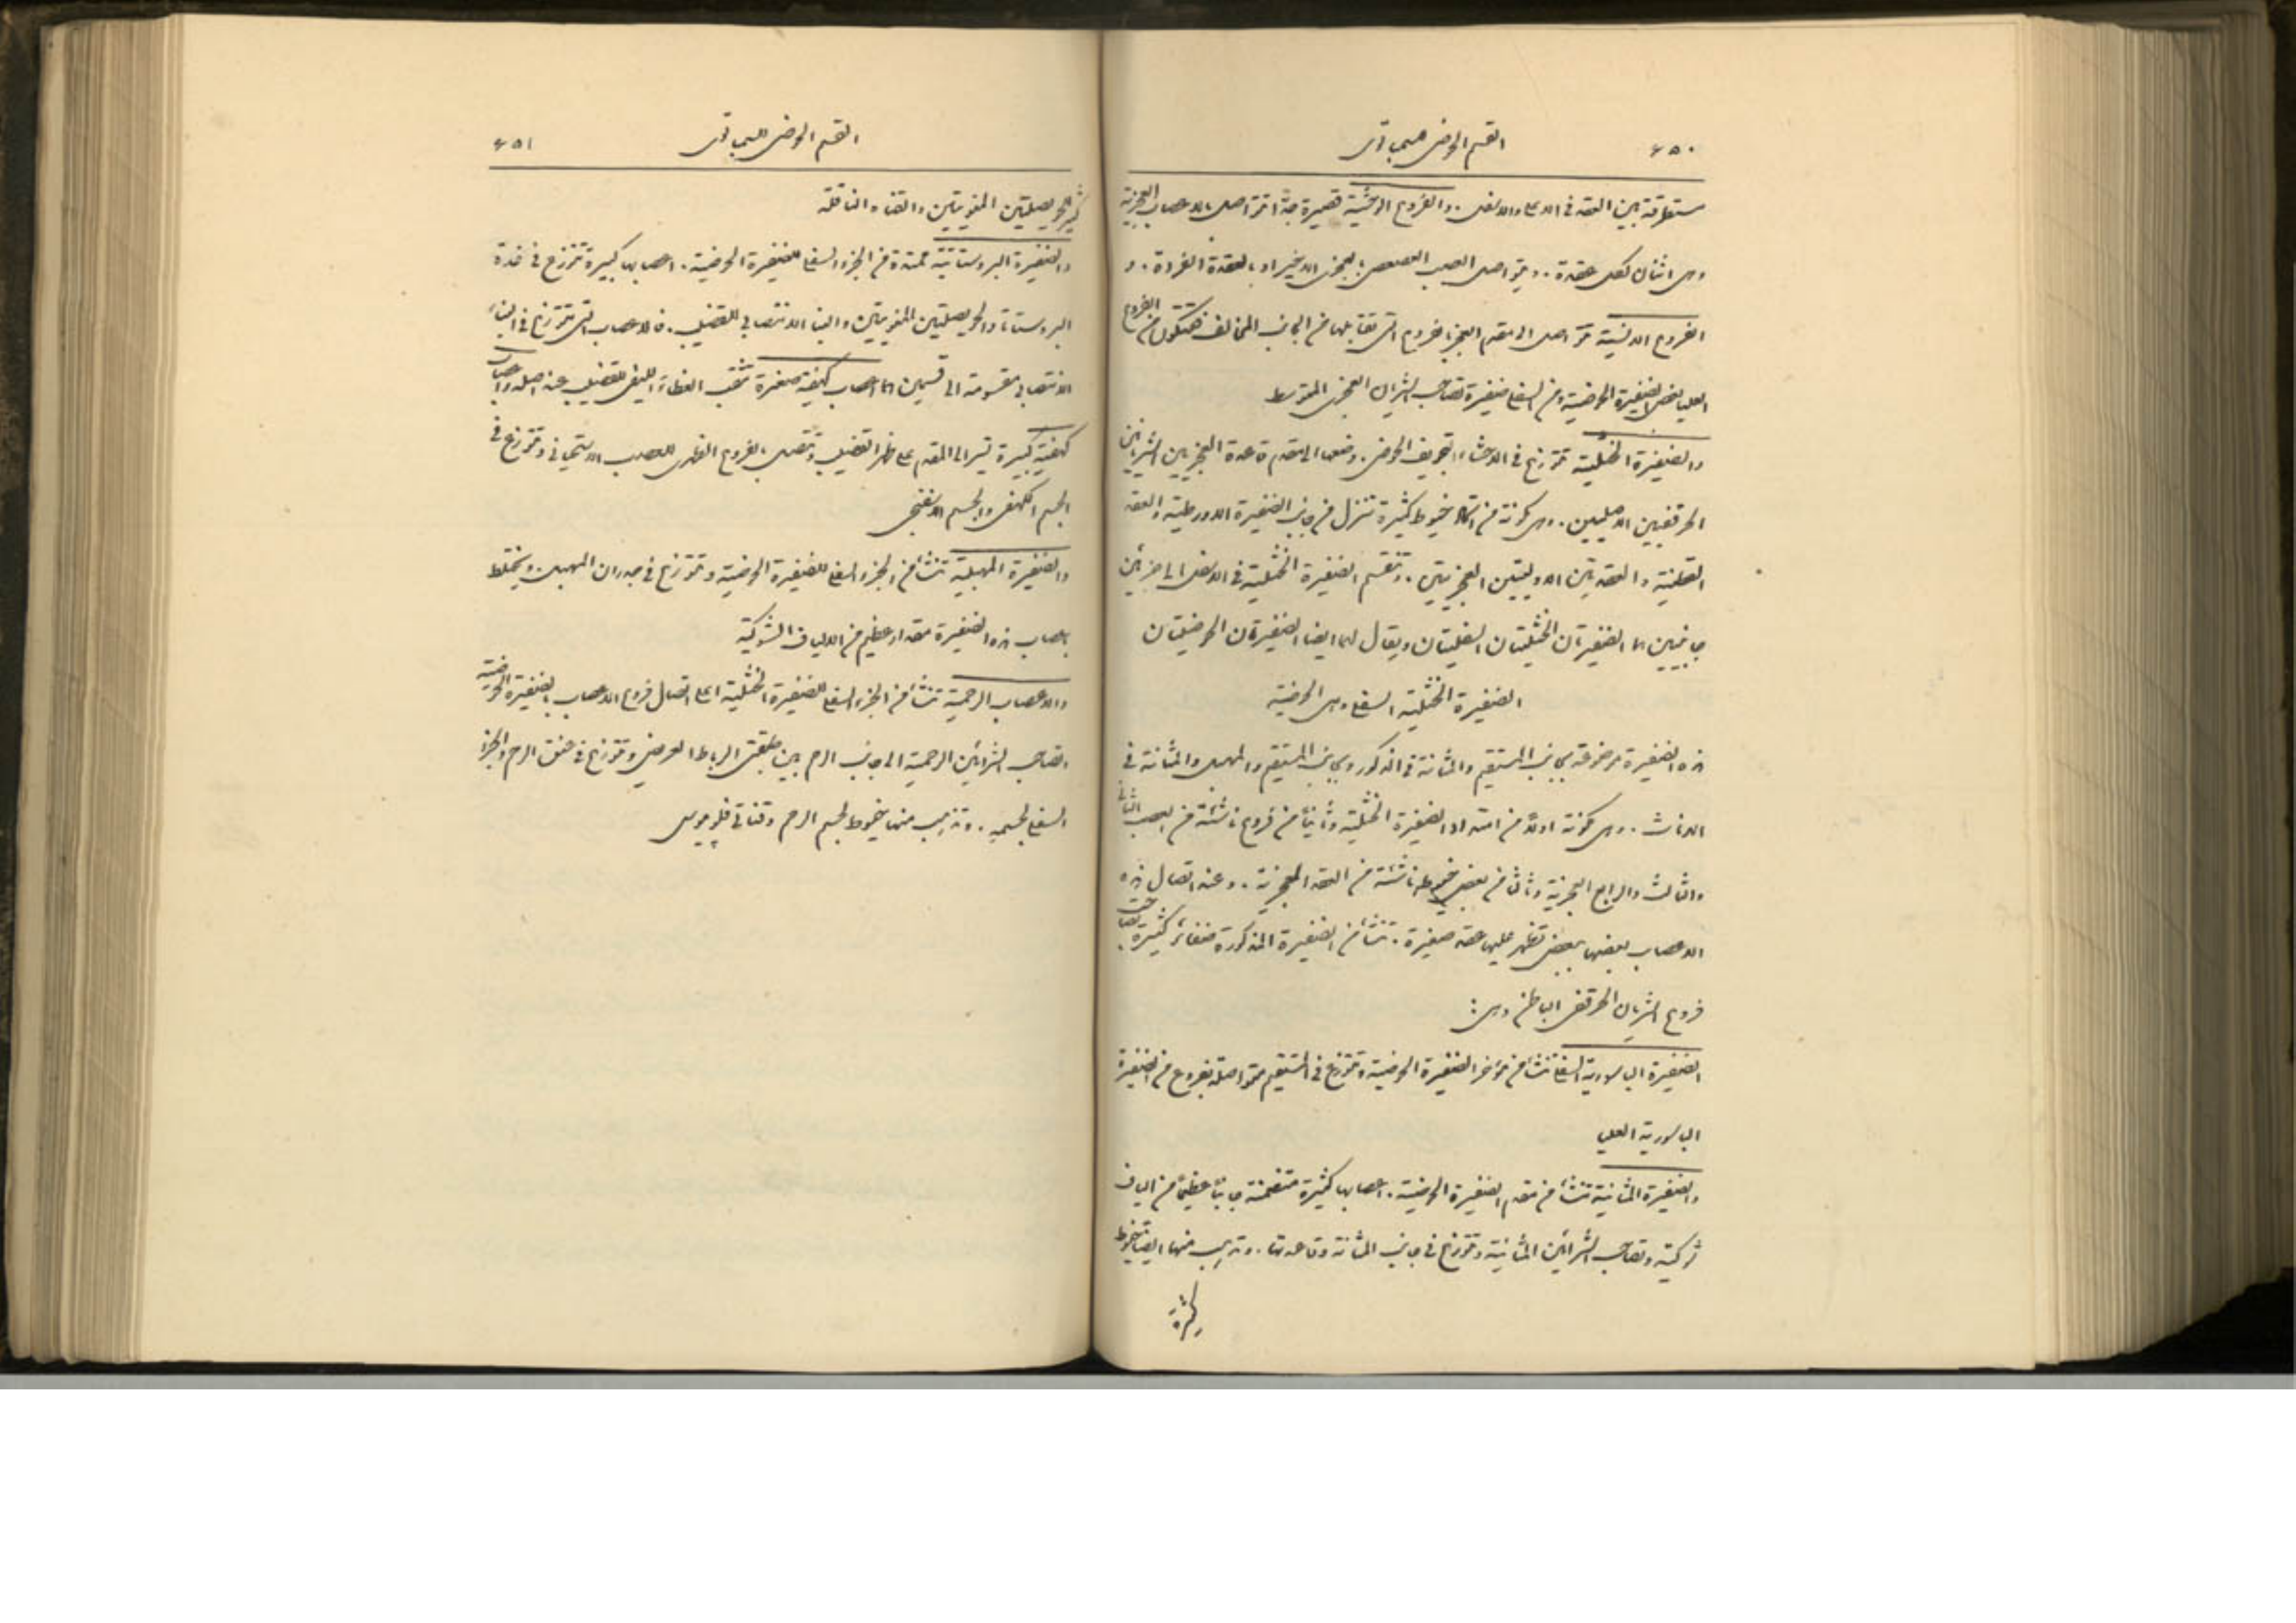 ٤٥٠
القسم الحوضي للسمباتوي
مستطرقة بين العقد في الاعلى والاسفل. والفروع الوحشية قصيرة جدًا تتواصل بالاعصاب العجزية
وهي اثنان لكل عقدة. ويتواصل العصب العصعصي بالعجزي الاخير او بالعقدة الفردة. و
الفروع الانسية تتواصل الى مقدم العجز بالفروع التي تقابلها من الجانب المخالف فتتكون من الفروع
العليا بعض الضفيرة الحوضية ومن السفلى ضفيرة تصاحب الشريان العجزي المتوسط
والضفيرة الخثلية تتوزع في الاحشاء بتجويف الحوض. وضعها الى مقدم قاعدة العجز بين الشريانين
الحرقفيين الاصليين. وهي مكونة من اتحاد خيوط كثيرة تنزل من جانب الضفيرة الاورطية والعقد
القطنية والعقدتين الاوليتين العجزيتين. وتنقسم الضفيرة الخثلية في الاسفل الى جزئين
جانبيين هما الضفيرتان الخثليتان السفليتان ويقال لهما ايضا الضفيرتان الحوضيتان
الضفيرة الخثلية السفلى وهي الحوضية
هذه الضفيرة موضوعة بجانب المستقيم والمثانة في الذكور وبجانب المستقيم والمهبل والمثانة في
الاناث. وهي مكونة اولًا من امتداد الضفيرة الخثلية وثانيًا من فروع ناشئة من العصب الثاني
والثالث والرابع العجزية وثالثًا من بعض خيوط ناشئة من العقد العجزية. وعند اتصال هذه
الاعصاب بعضها ببعض تظهر عليها عقد صغيرة. تنشأ من الضفيرة المذكورة ضفائر كثيرة تصاحب
فروع الشريان الحرقفي الباطن وهي:
الضفيرة الباسورية السفلى تنشأ من مؤخر الضفيرة الحوضية وتتوزع في المستقيم متواصلة بفروع من الضفيرة
الباسورية العليا
والضفيرة المثانية تنشأ من مقدم الضفيرة الحوضية. اعصابها كثيرة متضمنة جانبًا عظيمًا من الياف
شوكية وتصاحب الشرائين المثانية وتتوزع في جانب المثانة وقاعدتها. وتذهب منها ايضا خيوط
كثيرة
٤٥١
القسم الحوضي للسمباتوي
كثيرة للحويصلتين المنويتين والقناة الناقلة
والضفيرة البروستاتية ممتدة من الجزء السفلي للضفيرة الحوضية. اعصابها كبيرة تتوزع في غدة
البروستاتا والحويصلتين المنويتين والبناء الانتصابي للقضيب. فالاعصاب التي تتوزع في البناء
الانتصابي مقسومة الى قسمين هما اعصاب كهفية صغيرة تثقب الغطاء الليفي للقضيب عند اصله واعصاب
كهفية كبيرة تسير الى المقدم على ظهر القضيب وتتصل بالفروع الظهري للعصب الاستحيائي وتتوزع في
الجسم الكهفي والجسم الاسفنجي
والضفيرة المهبلية تنشأ من الجزء السفلي للضفيرة الحوضية وتتوزع في جدران المهبل. ويختلط
باعصاب هذه الضفيرة مقدار عظيم من الالياف الشوكية
والاعصاب الرحمية تنشأ من الجزء السفلي للضفيرة الخثلية اعلى اتصال فروع الاعصاب بالضفيرة الحوضية
تصاحب الشرائين الرحمية الى جانب الرحم بين طبقتي الرباط العريض وتتوزع في عنق الرحم والجزء
السفلي لجسمه. وتذهب منها خيوط لجسم الرحم وقناتي فلوبيوس